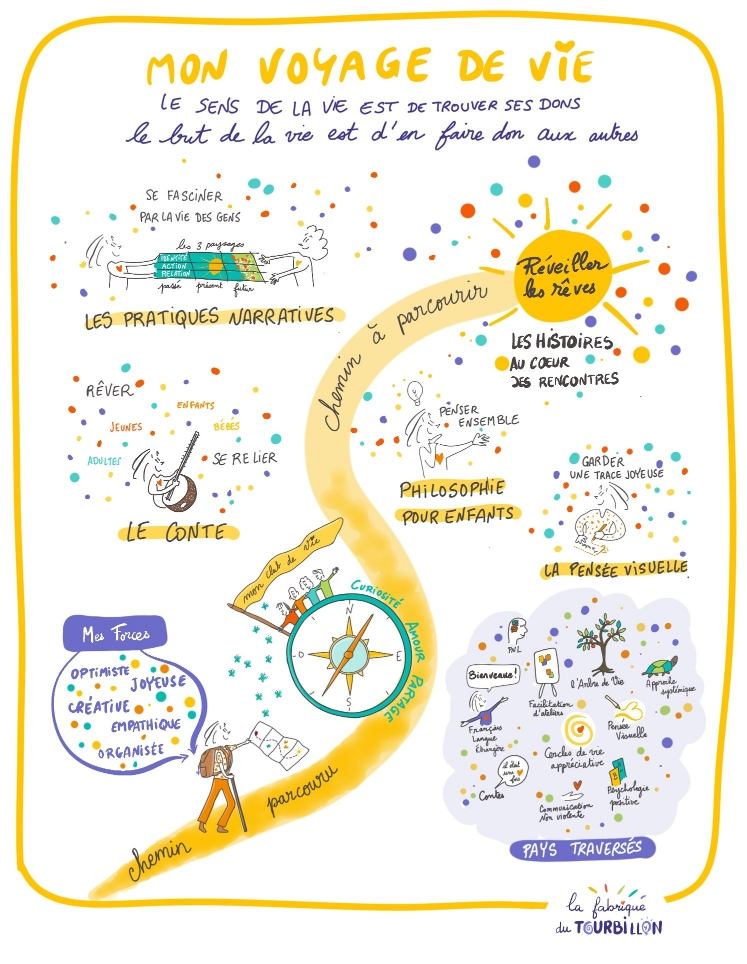 MON VOYAGE DE VIE
LE SENS DE LA VIE EST DE TROUVER SES DONS
le but de la vie est d'en faire don aux autres
SE FASCINER
PAR LA VIE DES GENS
les 3 paysages
IDENTITÉ
ACTION
RELATION
passé présent futur
LES PRATIQUES NARRATIVES
Réveiller
les rêves
LES HISTOIRES
AU CŒUR
DES RENCONTRES
chemin à parcourir
RÊVER
ENFANTS
JEUNES
BÉBÉS
ADULTES
SE RELIER
LE CONTE
PENSER
ENSEMBLE
PHILOSOPHIE
POUR ENFANTS
GARDER
UNE TRACE JOYEUSE
LA PENSÉE VISUELLE
mon club de vie
CURIOSITÉ
AMOUR
PARTAGE
N
D
E
S
Mes Forces
OPTIMISTE
JOYEUSE
CRÉATIVE
EMPATHIQUE
ORGANISÉE
chemin parcouru
PNL
Bienvenue!
Facilitation
d'ateliers
l'Arbre de Vie
Approche
systémique
Français
Langue
Etrangère
Pensée
Visuelle
Cercles de vie
appréciative
il était
une
fois
Contes
Communication
Non violente
Psychologie
positive
PAYS TRAVERSÉS
la fabrique
du TOURBILLON